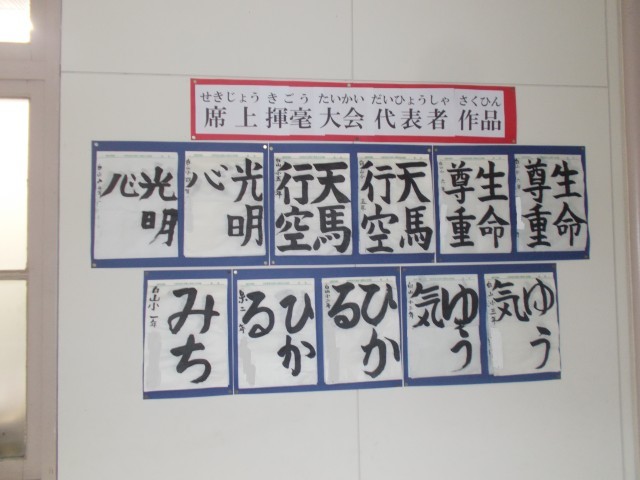 せきじょう きごう たいかい だいひょうしゃ さくひん
席上 揮毫 大会 代表者 作品
生命
尊重
生命
尊重
天馬
行空
天馬
行空
光明
心
光明
心
ゆう
気
ゆう
気
ひか
る
ひか
る
みち
白山小一年